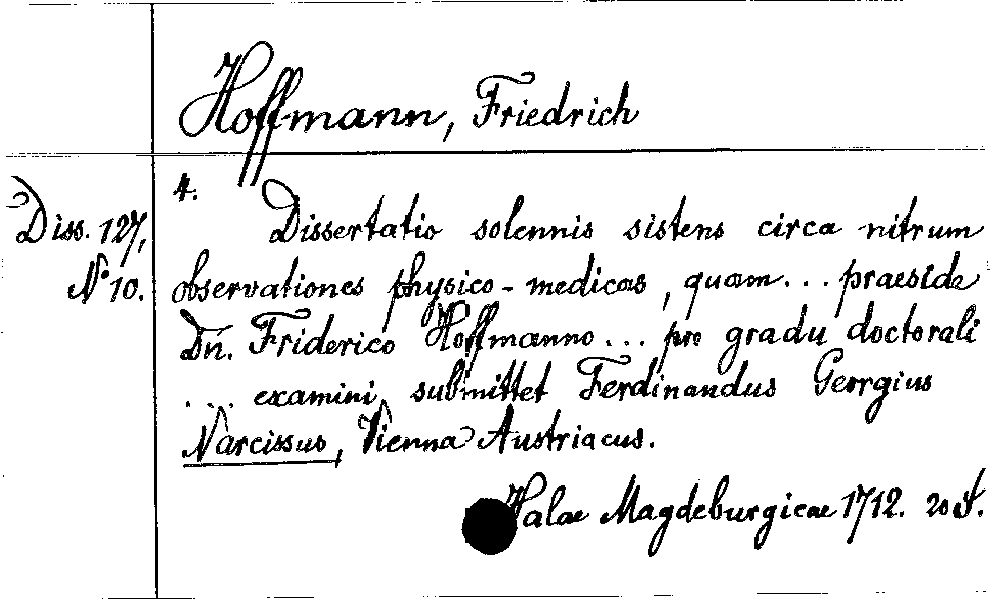 Hoffmann, Friedrich
4.
Diss. 127,
No 10.
Dissertatio solennis sistens circa nitrum
observationes physico-medicas, quam... praeside
Dn. Friderico Hoffmanno... pro gradu doctorali
... examini submittet Ferdinandus Georgius
Narcissus, Vienna Austriacus.
Halae Magdeburgicae 1712. 20 S.